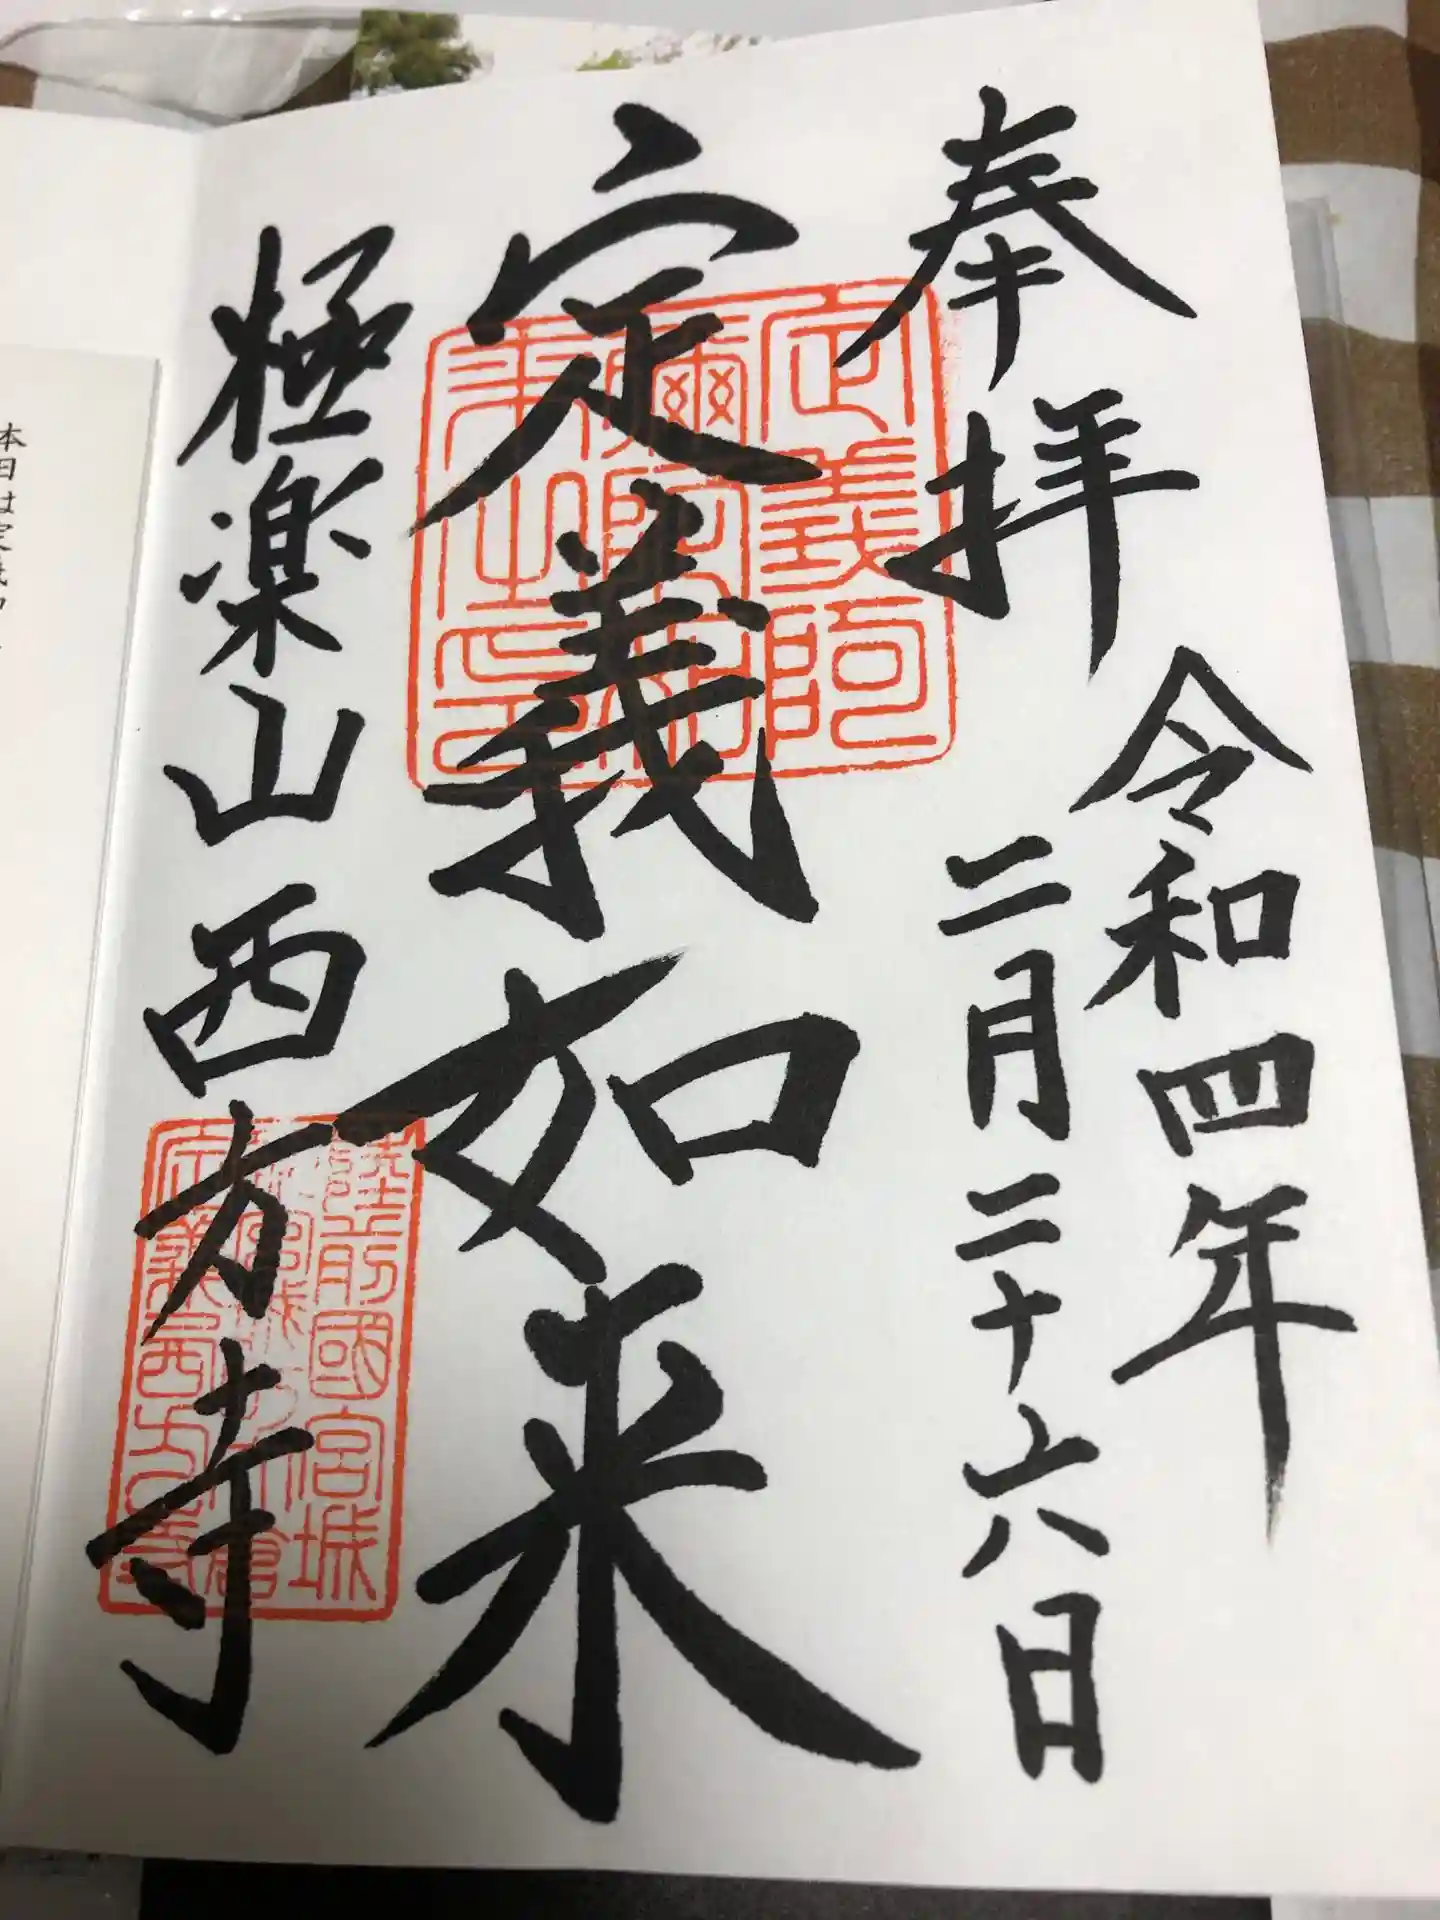 奉拝
令和四年
二月二十六日
定義如来
極楽山西方寺
定義阿
彌陀如
来之印
陸前國宮城
定義西方寺
本日は定義